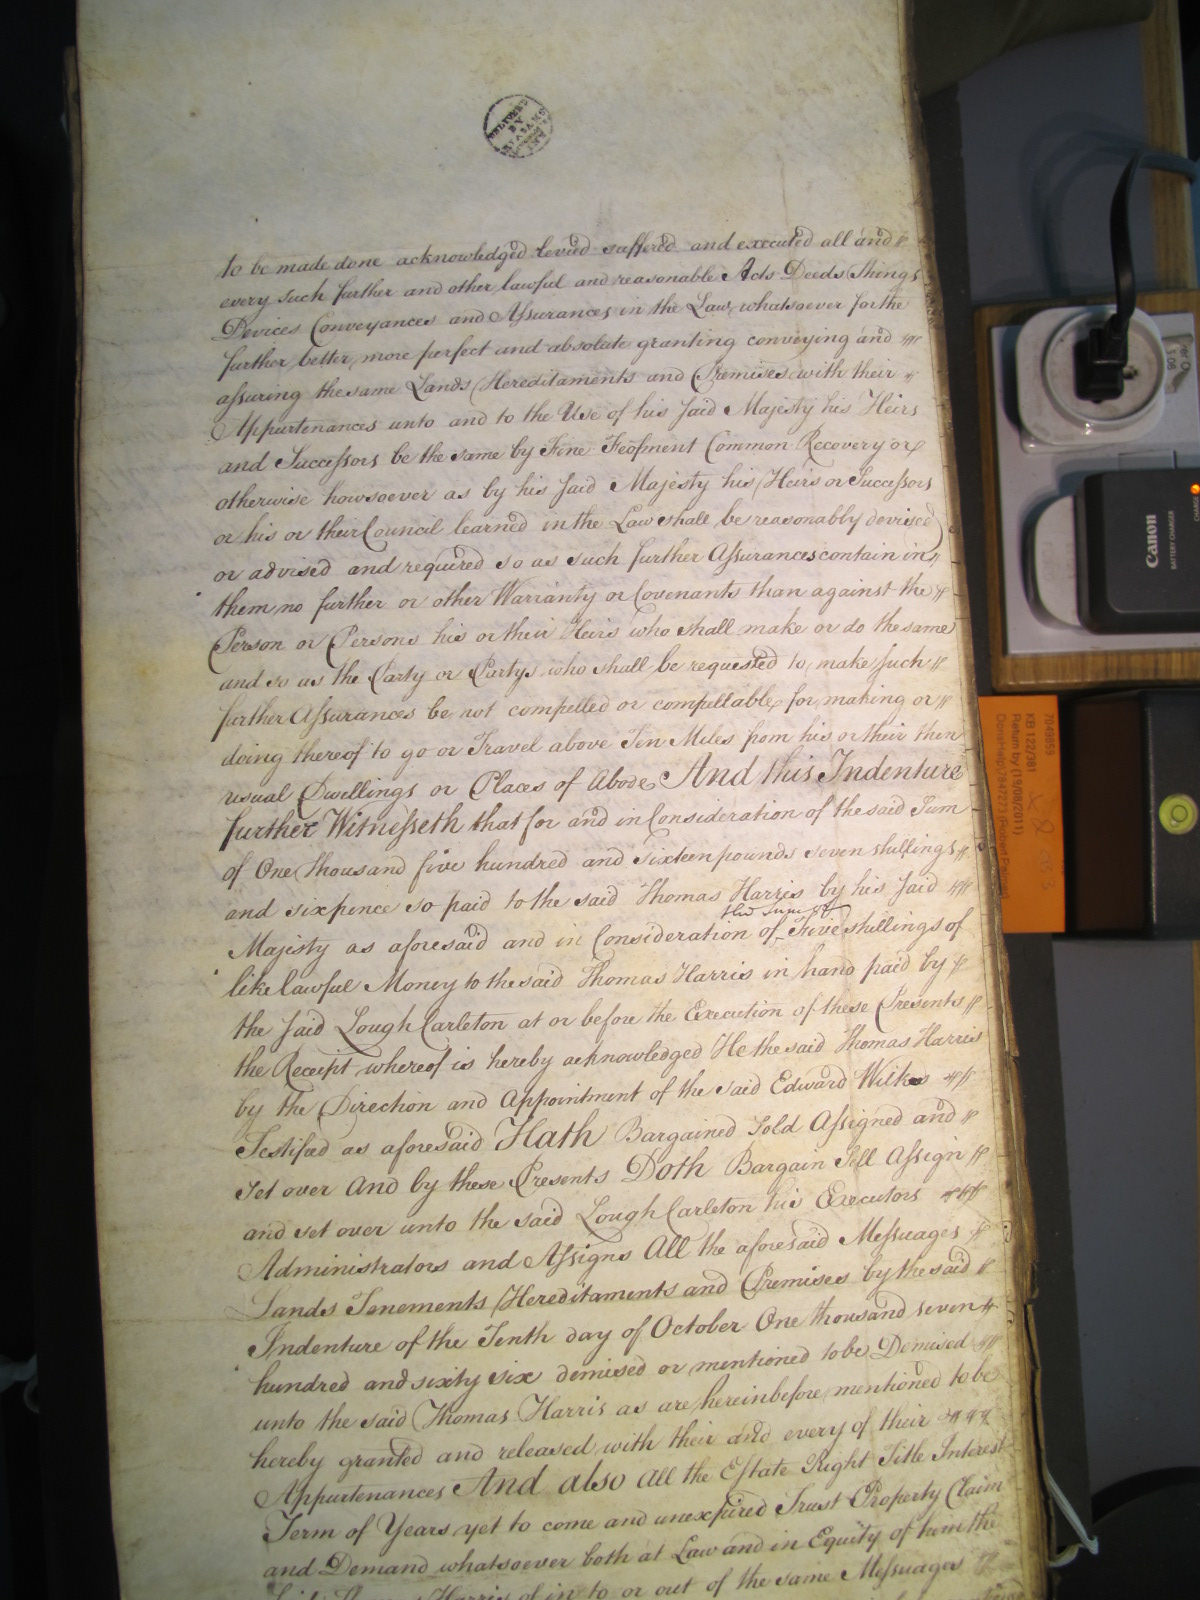 DELIVERED
BY
to be made done acknowledged levied suffered and executed all and
every such further and other lawful and reasonable Acts Deeds Things
Devices Conveyances and Assurances in the Law whatsoever for the
further better more perfect and absolute granting conveying and
assuring the same Lands Hereditaments and Premises with their
Appurtenances unto and to the Use of his said Majesty his Heirs
and Successors be the same by Fine Feofment Common Recovery or
otherwise howsoever as by his said Majesty his Heirs or Successors
or his or their Council learned in the Law shall be reasonably devised
or advised and required so as such further Assurances contain in
them no further or other Warranty or Covenants than against the
Person or Persons his or their Heirs who shall make or do the same
and so as the Party or Partys who shall be requested to make such
further Assurances be not compelled or compellable for making or
doing thereof to go or Travel above Ten Miles from his or their then
usual Dwellings or Places of Abode And this Indenture
further Witnesseth that for and in Consideration of the said Sum
of One Thousand five hundred and sixteen pounds seven shillings
and sixpence so paid to the said Thomas Harris by his said
the sum of
Majesty as aforesaid and in Consideration of Five shillings of
like lawful Money to the said Thomas Harris in hand paid by
the said Lough Carleton at or before the Execution of these Presents
the Receipt whereof is hereby acknowledged He the said Thomas Harris
by the Direction and Appointment of the said Edward Wilkes
Testified as aforesaid Hath Bargained Sold Assigned and
set over And by these Presents Doth Bargain Sell Assign
and set over unto the said Lough Carleton his Executors
Administrators and Assigns All the aforesaid Messuages
Lands Tenements Hereditaments and Premises by the said
Indenture of the Tenth day of October One thousand seven
hundred and sixty six demised or mentioned to be Demised
unto the said Thomas Harris as are hereinbefore mentioned to be
hereby granted and released with their and every of their
Appurtenances And also all the Estate Right Title Interest
Term of Years yet to come and unexpired Trust Property Claim
and Demand whatsoever both at Law and in Equity of him the
said Thomas Harris of in to or out of the same Messuages
Canon
BATTERY CHARGER
CHARGE
7049955
KB 122/381
Return by (19/08/2011)